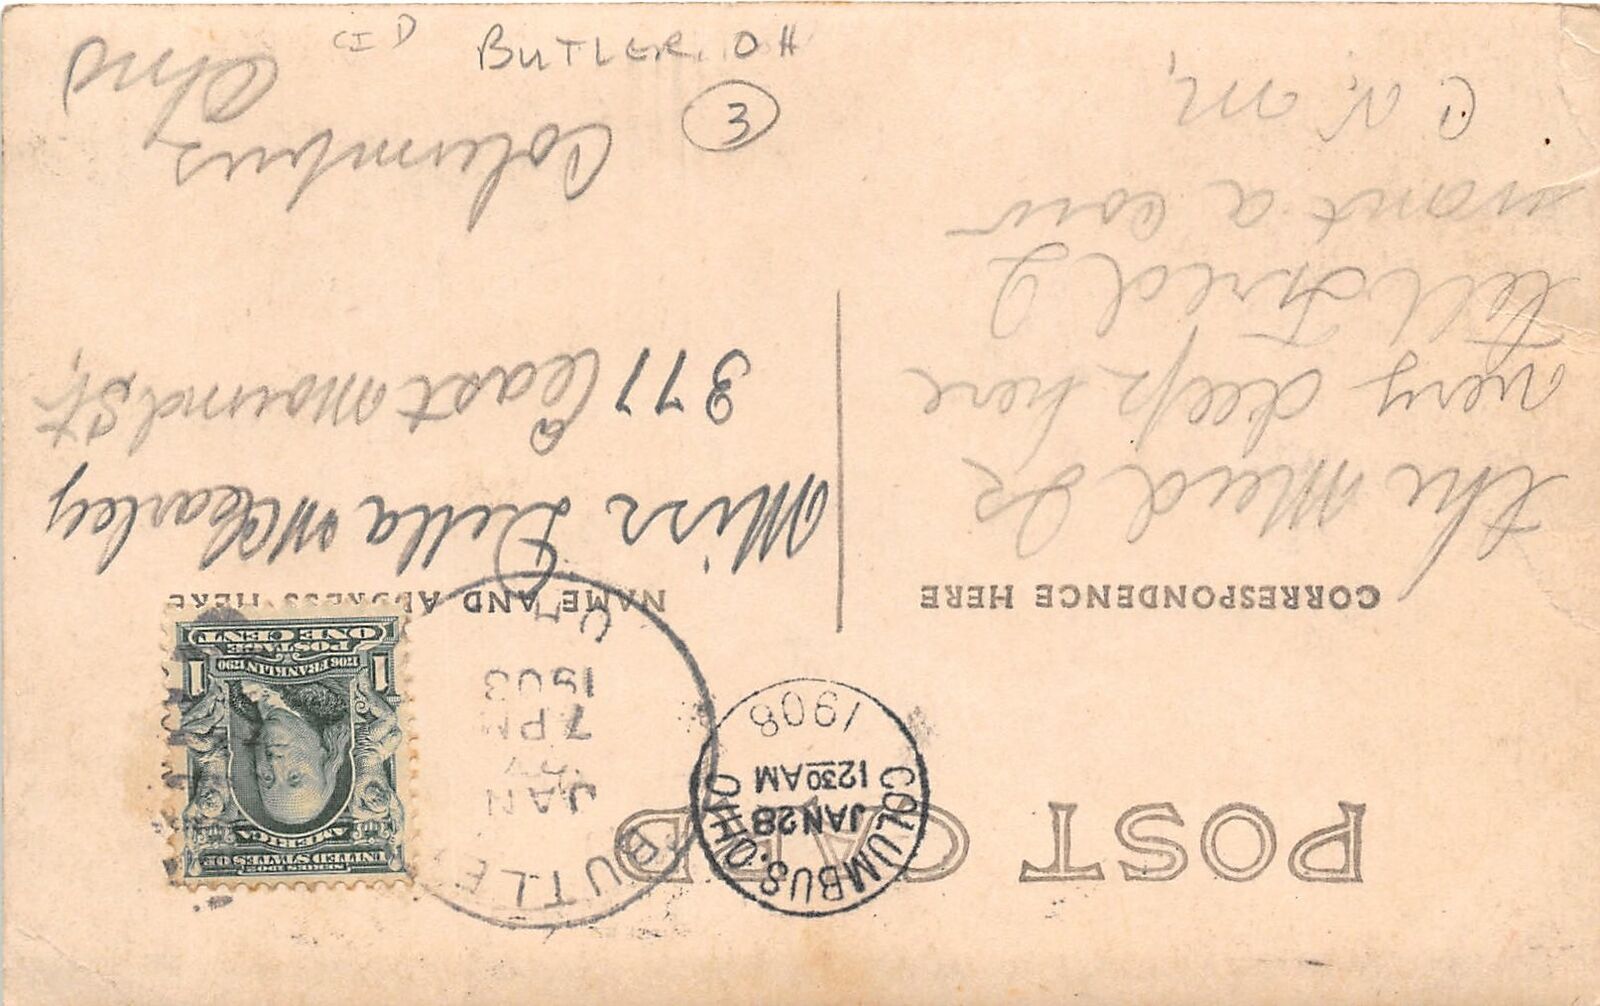 POST CARD
CORRESPONDENCE HERE
NAME AND ADDRESS HERE
the Mud Is
very deep here
tell Fred I
want a cow
C. N. M,
Miss Della McCearley
377 East Mound St,
Columbus,
Ohio
COLUMBUS, OHIO
JAN 28
12 30 AM
1908
BUTLE
JAN
7 PM
1908
SERIES 1902
UNITED STATES OF
AMERICA
1706 FRANKLIN 1790
POSTAGE
1 ONE CENT 1
BUTLER, OH
3